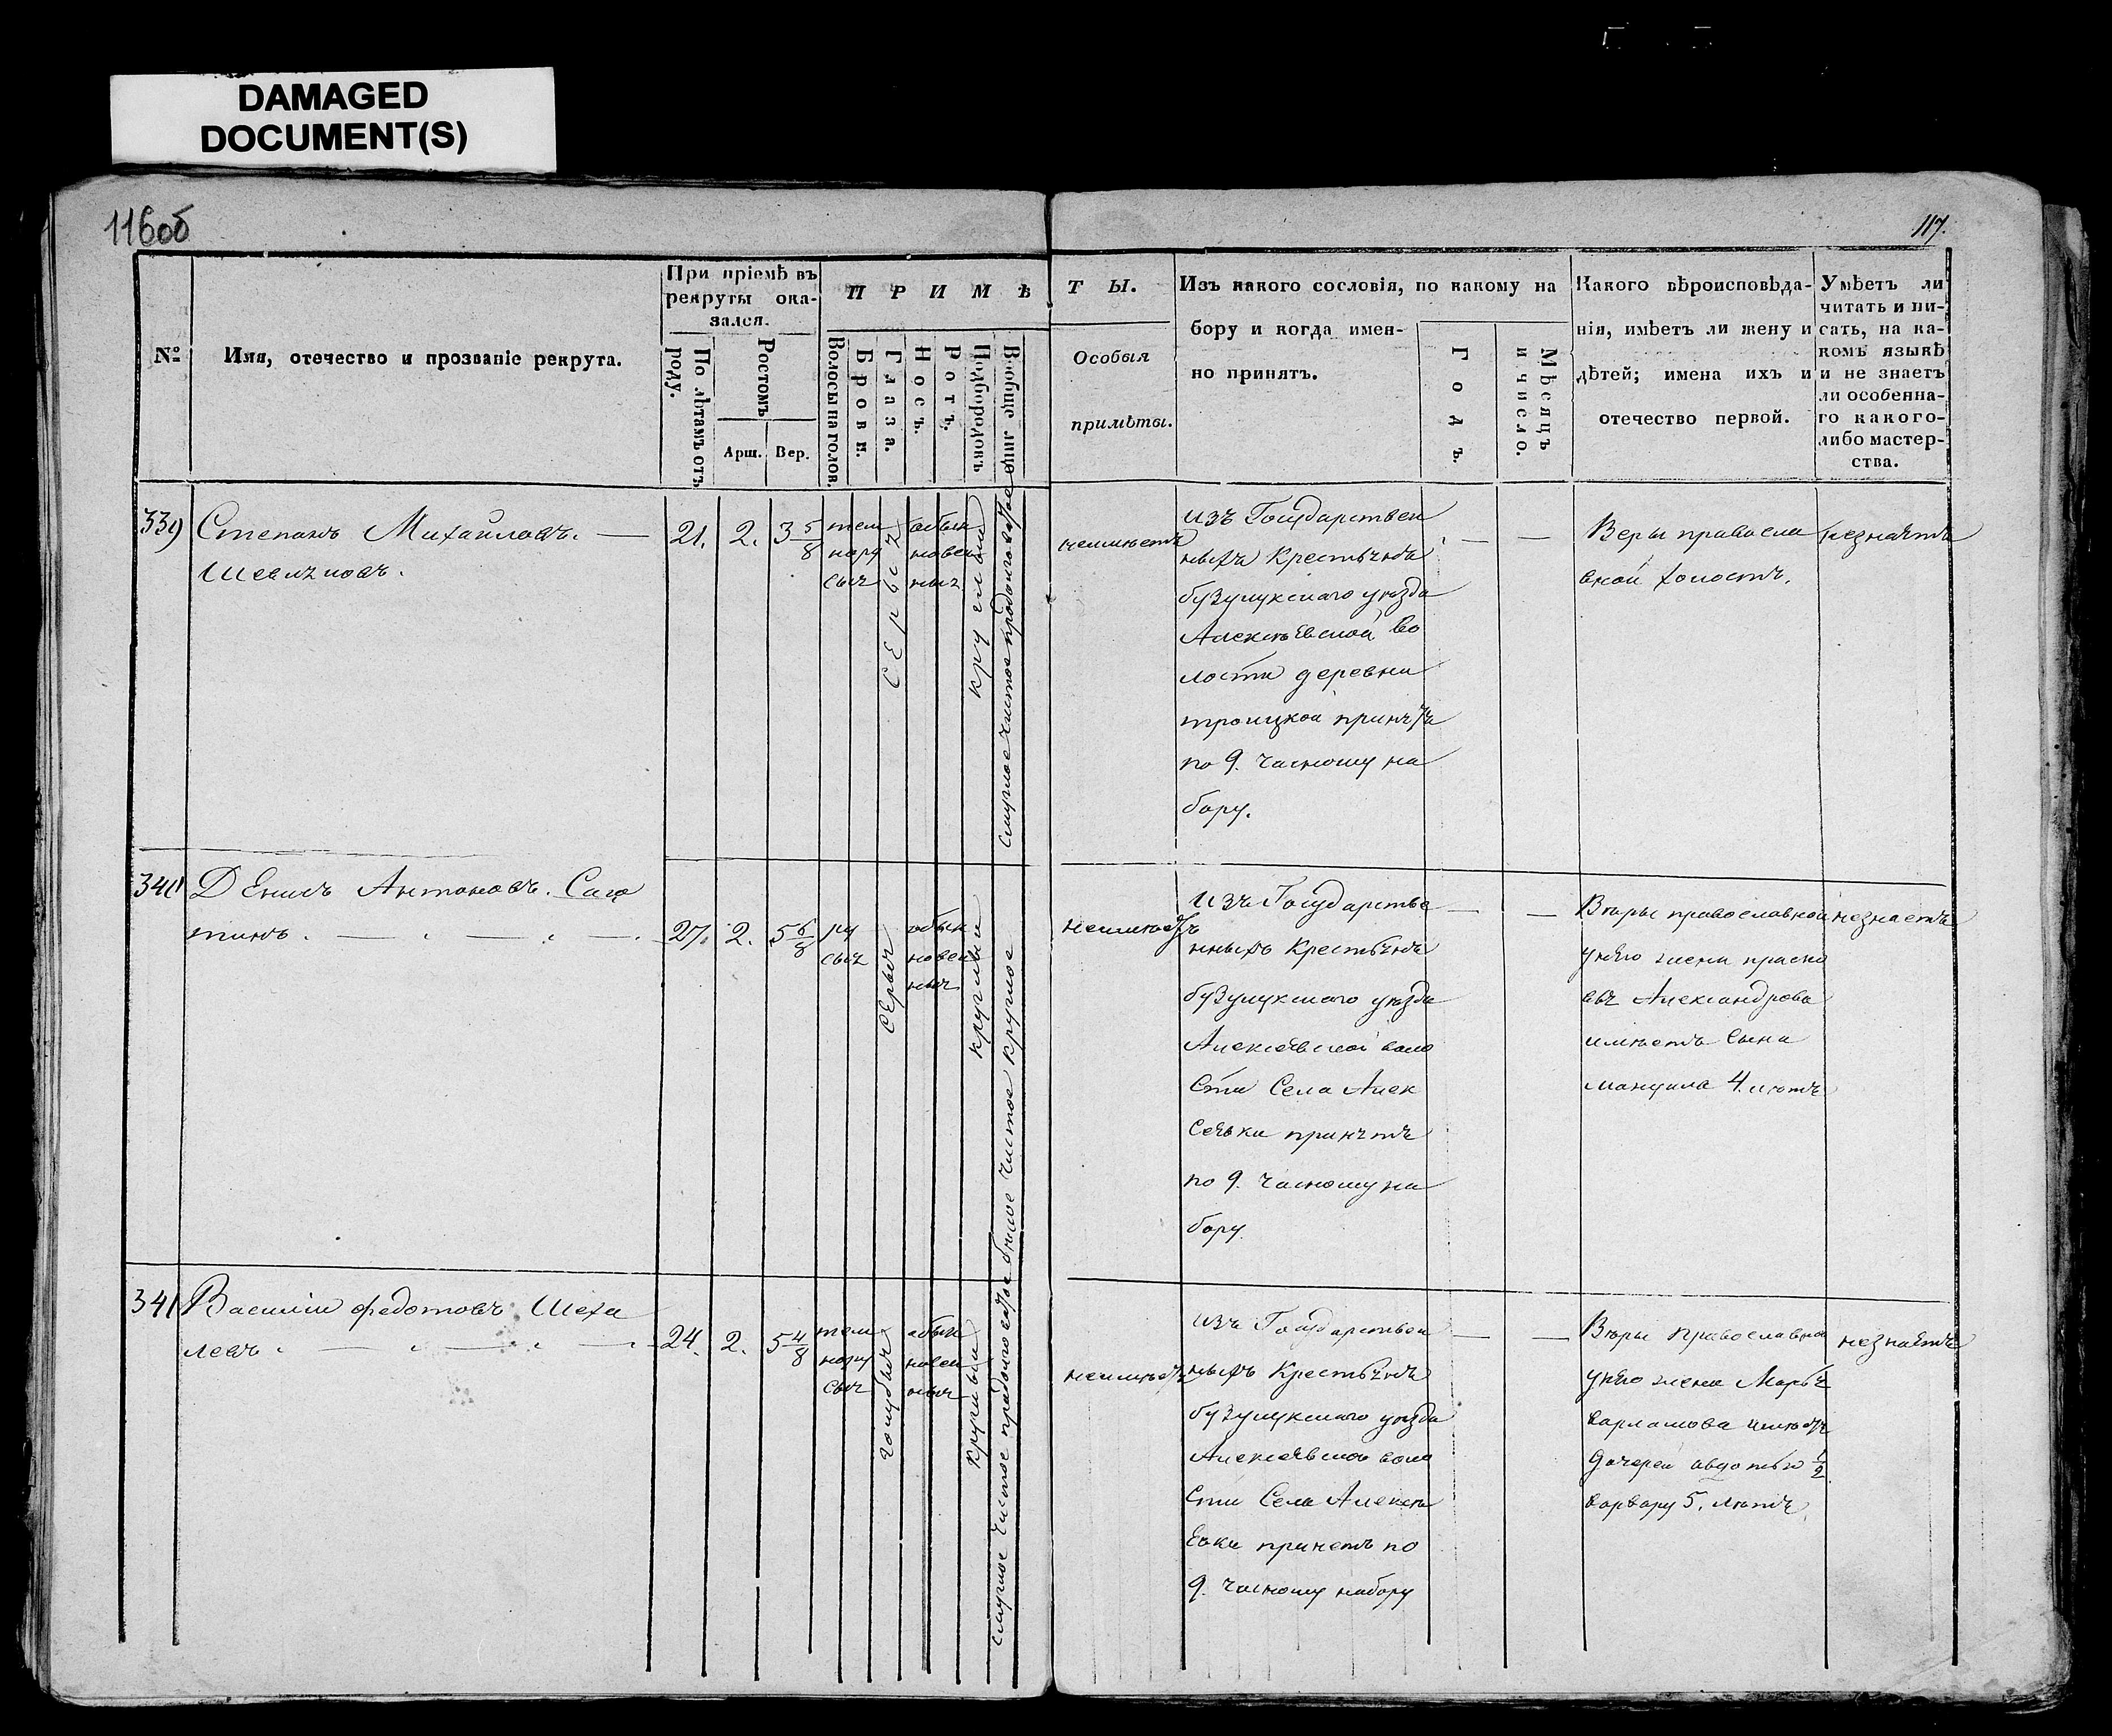 DAMAGED
DOCUMENT(S)
116об
117.
№
Имя, отечество и прозваніе рекрута.
При пріемѣ въ
рекруты ока-
зался.
По лѣтамъ отъ
роду.
Ростомъ
Арш.
Вер.
ПРИМѢ
Волосы на голов.
Брови.
Глаза.
Носъ.
Ротъ.
Подбородокъ
Вообще лицо
ТЫ.
Особыя
примѣты.
Изъ какого сословія, по какому на
бору и когда имен-
но принятъ.
Годъ.
Мѣсяцъ
и число.
Какого вѣроисповѣда-
нія, имѣетъ ли жену и
дѣтей; имена ихъ и
отечество первой.
Умѣетъ ли
читать и пи-
сать, на ка-
комъ языкѣ
и не знаетъ
ли особенна-
го какого-
либо мастер-
ства.
339
Степанъ Михайловъ. —
21.
2.
3 5/8
тем
нору
сыя
сЕрыя
обыкн
новен
ныя
круглый
смуглое чистое продолговатое
неимѣетъ
изъ Государствен
ныхъ Крестьянъ
бузулукскаго уѣзда
АлексѣЕвской Во
лости деревни
троицкой принятъ
по 9. часному на
бору.
— —
Веры правосла
вной холостъ.
незнаЕтъ
340
ДЕнисъ Антоновъ. Сага
тинъ. — . — . — .
27.
2.
5 6/8
ру
сыя
сЕрыя
обык
новен
ныя
круглый
белое чистое круглое
неимѣетъ
изъ Государстве
нныхъ Крестьянъ
бузулукскаго уѣзда
АлексеЕвской воло
Сти Села Алек
СеЕвки принятъ
по 9. часному на
бору.
— —
Вѣры православной
у нЕго жена праско
вья Александрова
имѣетъ Сына
мануила 4. лѣтъ
незнаетъ
341
Василій федотовъ Шеха
левъ . — . — . — .
24.
2.
5 4/8
тем
нору
сыя
голубыя
обык
новен
ныя
круглый
смуглое чистое продолговатое
неимѣетъ
изъ Государствен
ныхъ Крестьянъ
бузулукскаго уѣзда
АлексеЕвской воло
Сти Села Алексѣ
Евки принетъ по
9. часному набору
— —
Вѣры Православно
у нЕго жена Марья
варламова имѣетъ
дочерей авдотью 1/2
варвару 5. лѣтъ.
незнаЕтъ